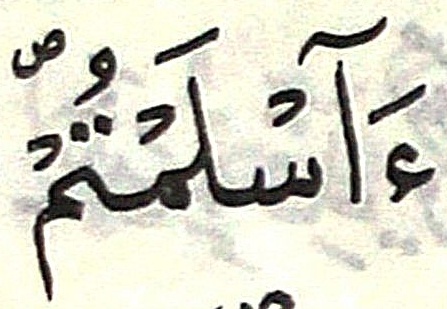 ءَآسْلَمْتُمْ ۖ ص